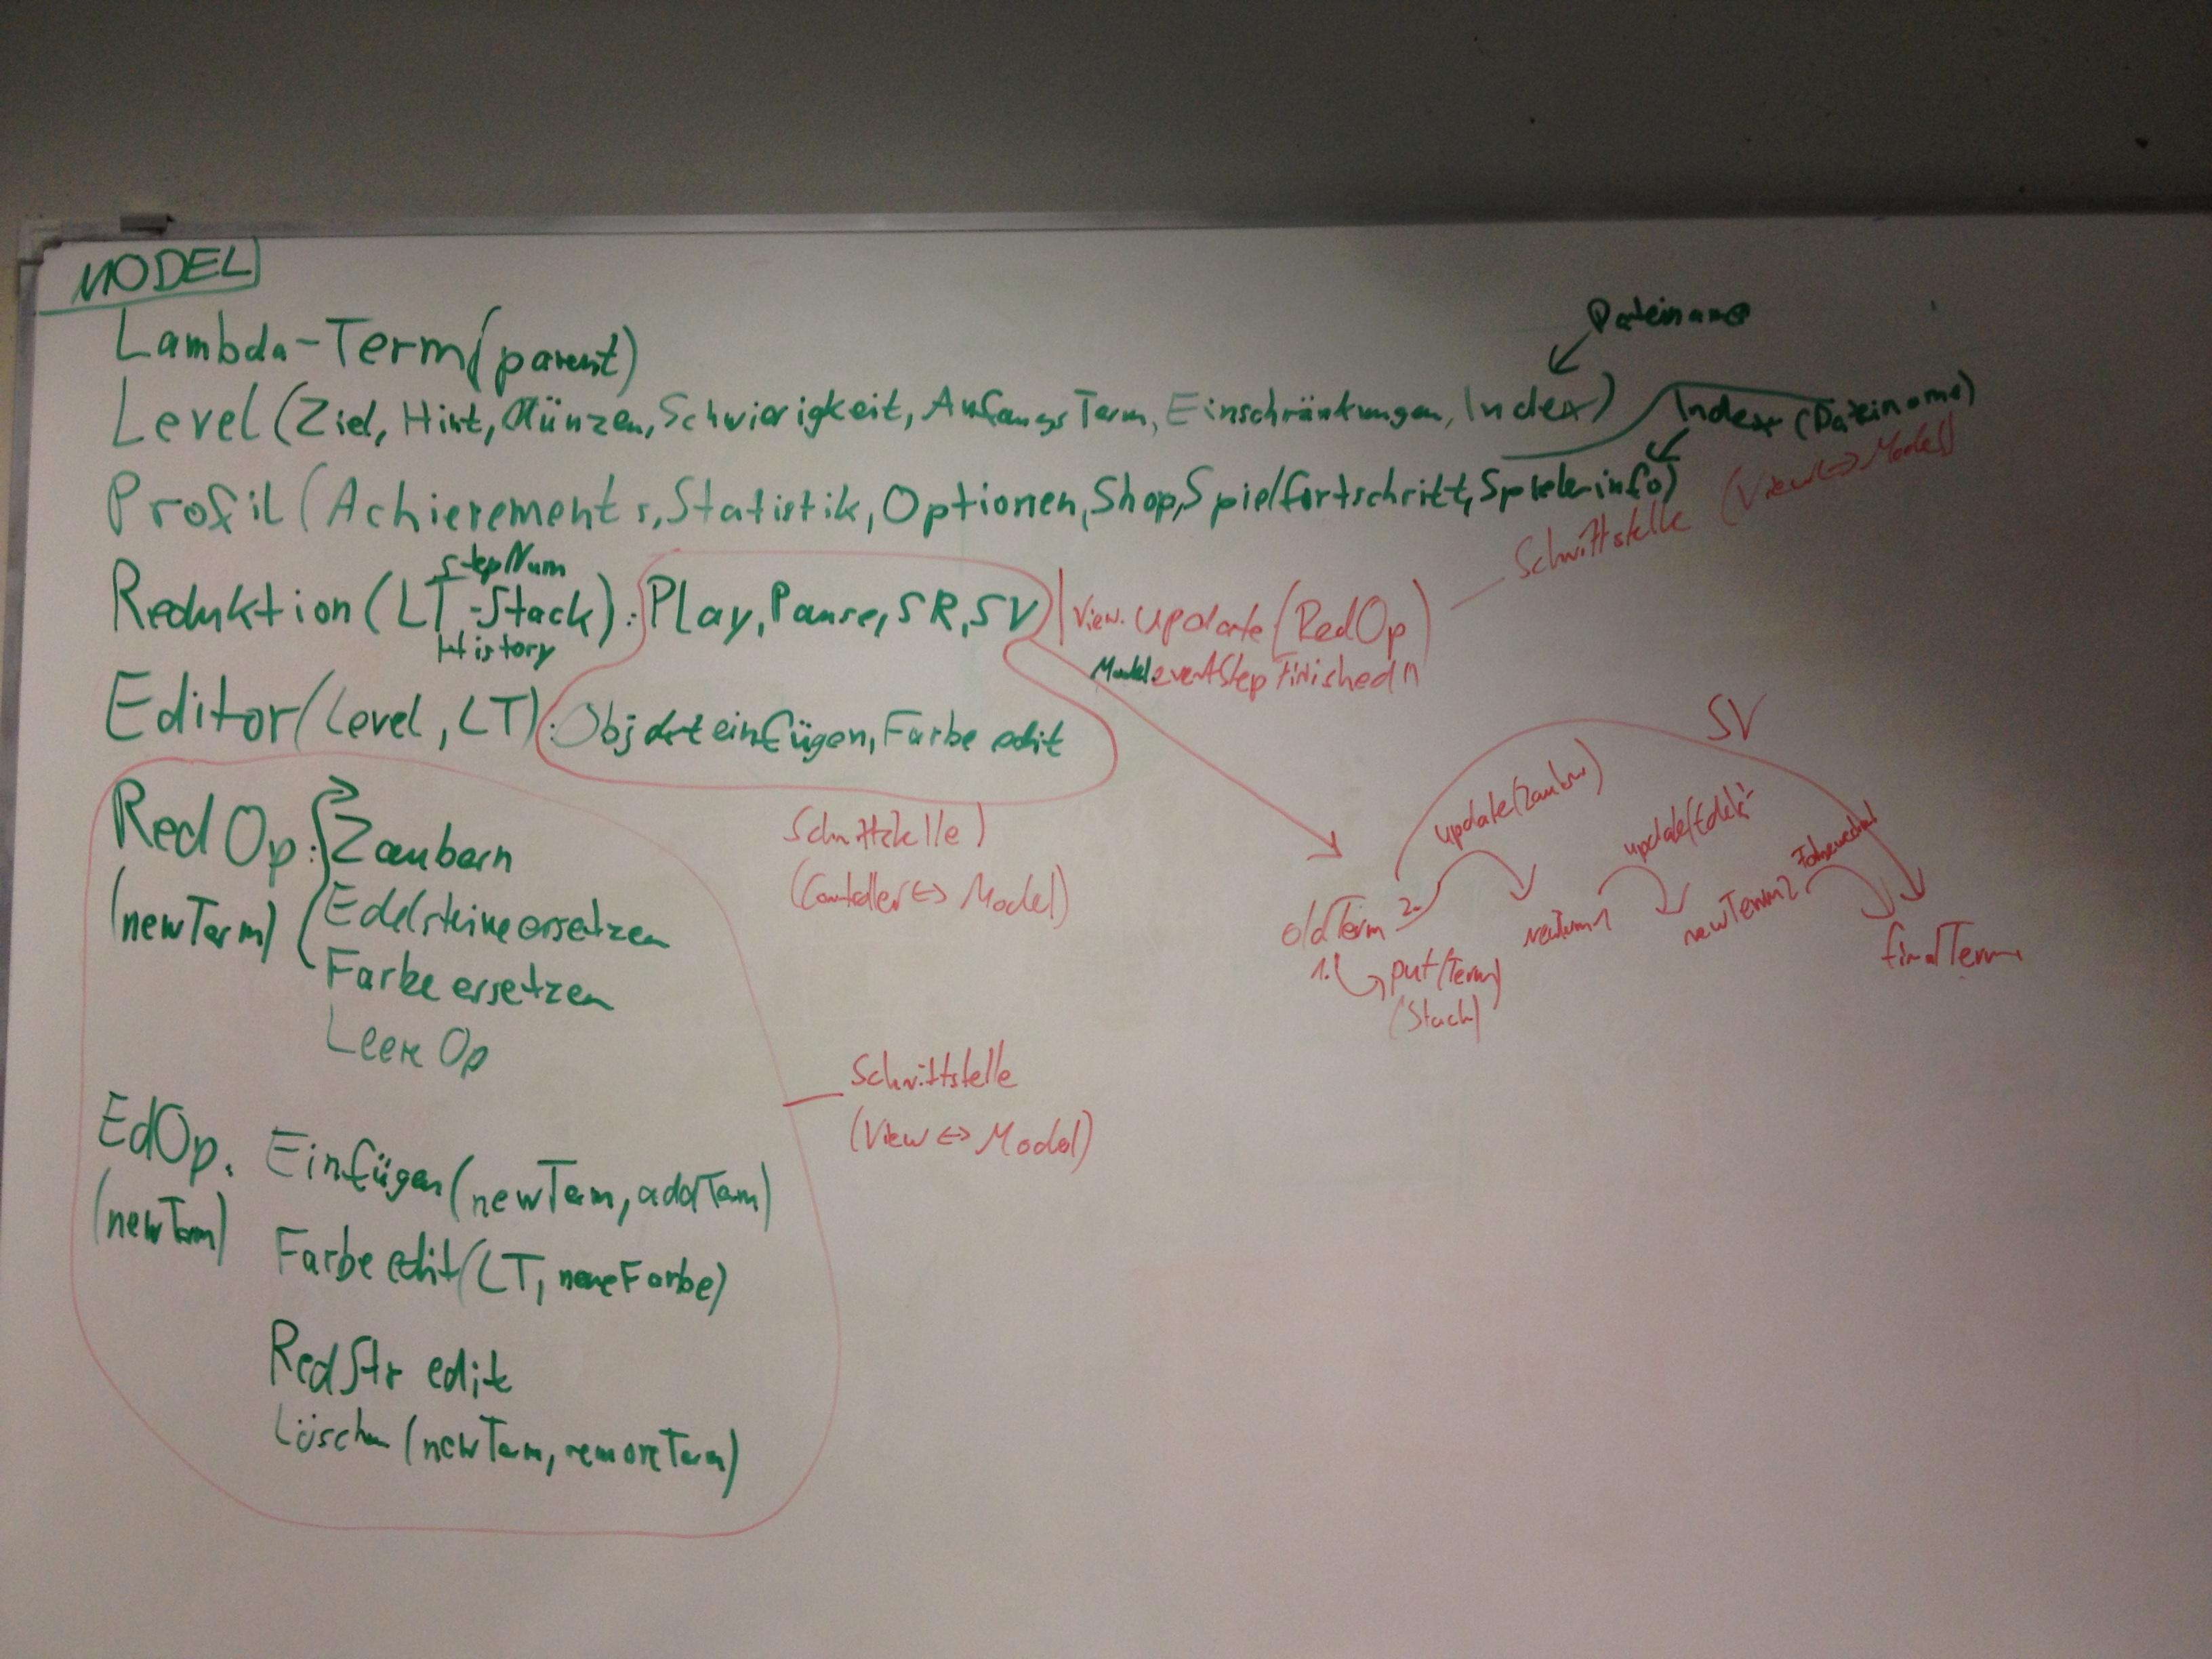 MODEL
Lambda-Term(parent)
Dateiname
Level(Ziel, Hint, Münzen, Schwierigkeit, AnfangsTerm, Einschränkungen, Index)
Index (Dateiname)
Profil(Achievements, Statistik, Optionen, Shop, Spielfortschritt, Spielerinfo)
Schnittstelle (View<->Model)
StepNum
Reduktion(LT-Stack): Play, Pause, SR, SV | View.update(RedOp)
History
Model.eventStepFinished()
Editor(Level, LT): Objekt einfügen, Farbe edit
SV
RedOp: Zaubern
(newTerm)
Edelsteine ersetzen
Farbe ersetzen
Leere Op
Schnittstelle)
(Controller<->Model)
update(Zaubern)
update(Edels.
oldTerm
2.
newTerm1
newTerm2
finalTerm
1.
put(Term)
(Stack)
Schnittstelle
(View<->Model)
EdOp: Einfügen(newTerm, addTerm)
(newTerm)
Farbe edit(LT, neueFarbe)
RedStr edit
Löschen(newTerm, removeTerm)